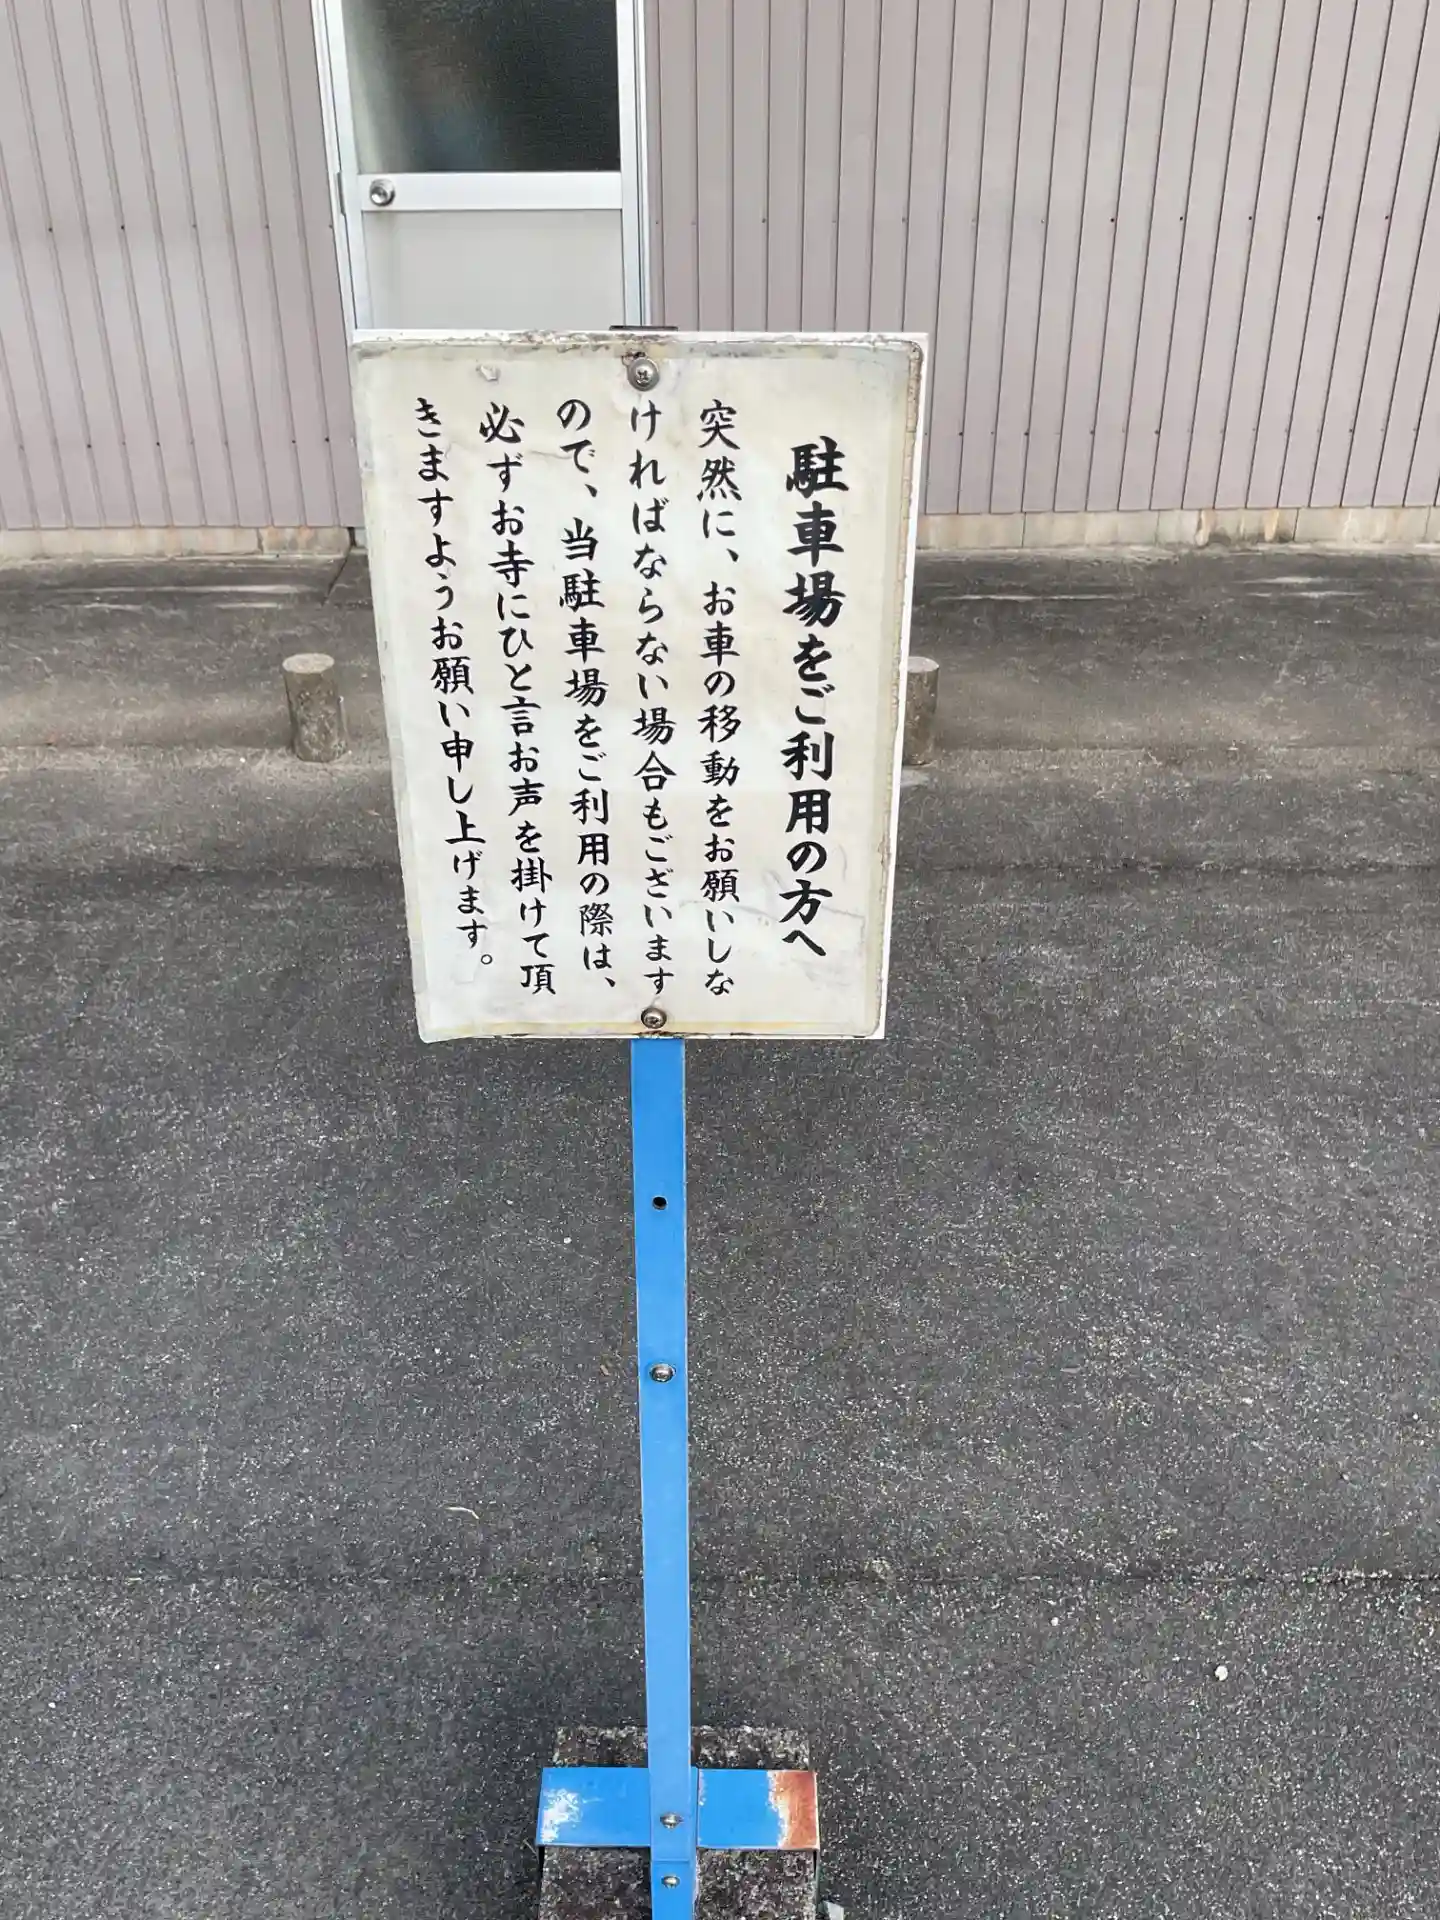 駐車場をご利用の方へ
突然に、お車の移動をお願いしな
ければならない場合もございます
ので、当駐車場をご利用の際は、
必ずお寺にひと言お声を掛けて頂
きますようお願い申し上げます。